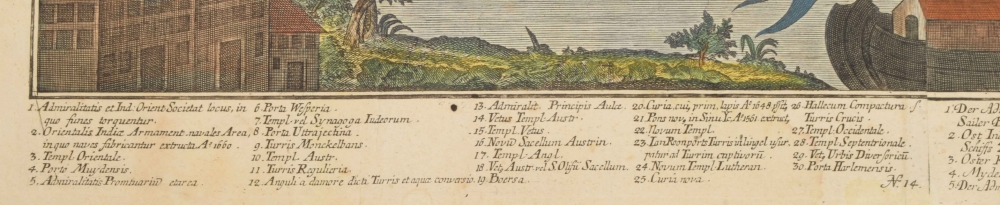 1. Admiralitatis et Ind. Orient Societat locus, in
quo funes torquentur.
2. Orientalis Indiæ Armament. navales Area,
in quo naves fabricantur extructa A.º 1660.
3. Templ Orientale.
4. Porto Muydensis.
5. Admiralitatis Promtuariũ et area.
6. Porta Wesperia.
7. Templ. vel Synagoga Iudeorum.
8. Porta Ultrajectina.
9. Turris Monckelbans.
10. Templ. Austr.
11. Turris Regulieria.
12. Anguli a clamore dicti Turris et aquæ conversio.
13. Admiralit Principis Aulæ.
14. Vetus Templ Austr.
15. Templ. Vetus.
16. Noviũ Sacellum Austrin.
17. Templ. Angl.
18. Vet. Austr. vel S. Olofii Sacellum.
19. Boersa.
20. Curia, cui, prim, lapis A.º 1648
21. Pons nov, in Sinu Y. A.º 1561 extruct,
22. Novum Templ.
23. Ian Ronports Turris
24. Novum Templ. Lutheran.
25. Curia nova.
26. Hallecum Compactura f.
Turris Crucis.
27. Templ. Occidentale.
28. Templ Septentrionale.
29. Vet, Urbis Diversoriũ
30. Porta Harlemensis.
N.º 14.
1 Der Ad
Sailer
2. Ost In
Schiffs
3. Oster
4. Myde
5. Der Adm